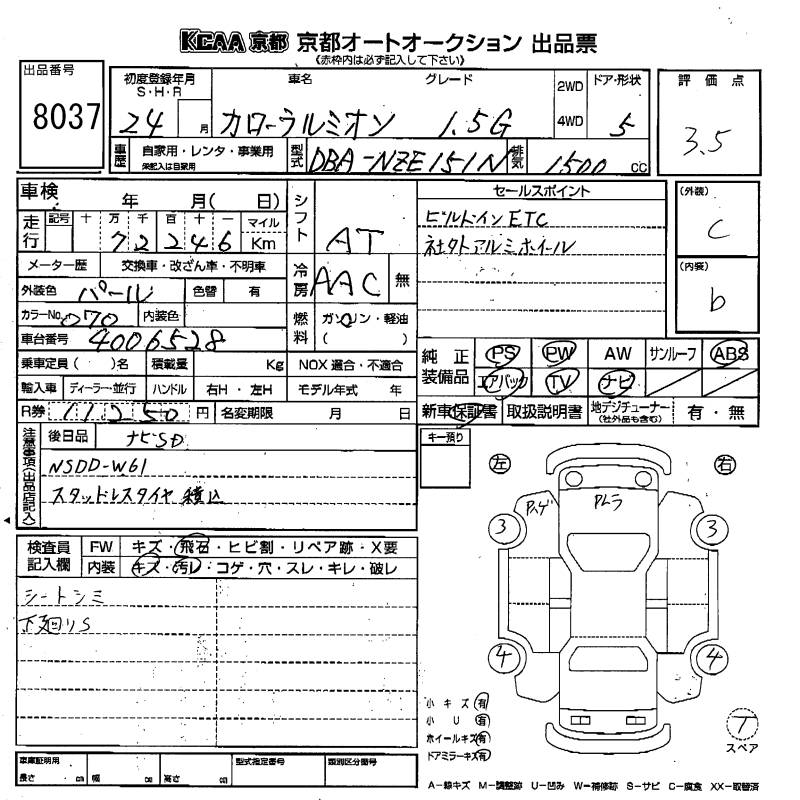 KCAA 京都 京都オートオークション 出品票
《赤枠内は必ず記入して下さい》
出品番号
8037
初度登録年月
S・H・R
24 月
車名 グレード
カローラルミオン 1.5G
2WD
4WD
ドア・形状
5
評価点
3.5
車歴 自家用・レンタ・事業用
未記入は自家用
型式 DBA-NZE151N
排気 1500 cc
車検 年 月( 日)
シフト AT
セールスポイント
ビルトインETC
社外アルミホイール
(外装)
C
(内装)
b
走行 記号 十 万 千 百 十 一 マイル
7 2 2 4 6 Km
メーター歴 交換車・改ざん車・不明車
冷房 AAC 無
外装色 パール 色替 有
カラーNo. 070 内装色
燃料 ガソリン・軽油
( )
車台番号 4006528
乗車定員 ( )名 積載量 Kg NOX 適合・不適合
輸入車 ディーラー・並行 ハンドル 右H・左H モデル年式 年
R券 11250 円 名変期限 月 日
純正装備品 PS PW AW サンルーフ ABS
エアバック TV ナビ
新車保証書 取扱説明書 地デジチューナー (社外品も含む) 有・無
注意事項(出品店記入)
後日品 ナビSD
NSDD-W61
スタッドレスタイヤ積込
キー預り
左 右
Pスゲ Pムラ
3 3
4 4
検査員記入欄
FW キズ・飛石・ヒビ割・リペア跡・X要
内装 キズ・汚レ・コゲ・穴・スレ・キレ・破レ
シートシミ
下廻りS
小キズ 有
小U 有
ホイールキズ 有
ドアミラーキズ 有
T
スペア
車庫証明用
長さ cm 幅 cm 高さ cm
型式指定番号 類別区分番号
A-線キズ M-調整跡 U-凹み W-補修跡 S-サビ C-腐食 XX-取替済